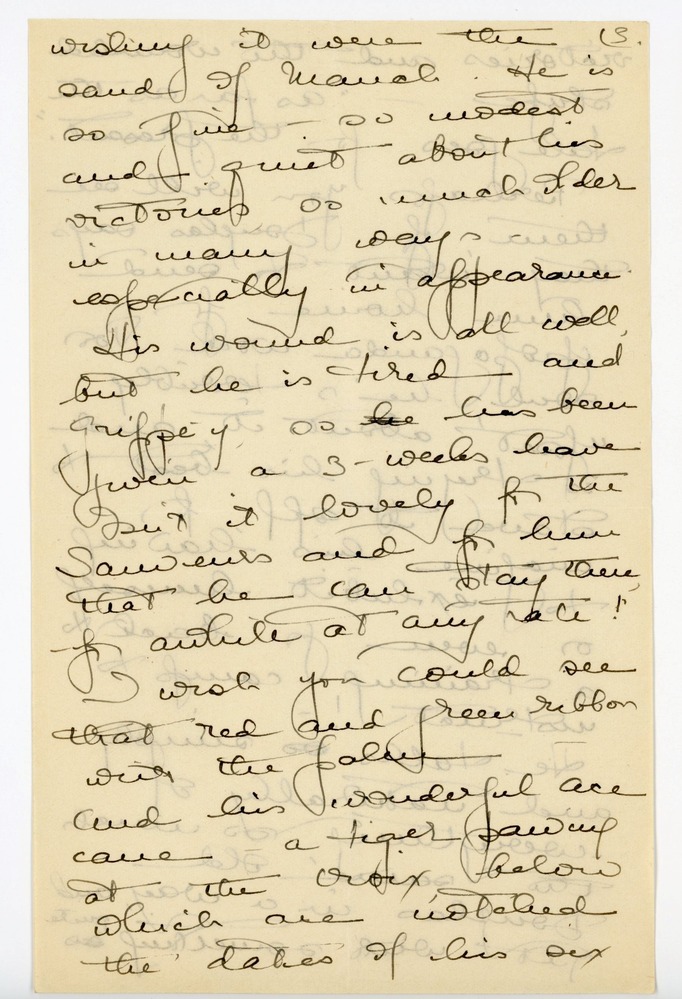 wishing it were the 13.
sand of March. He is
so fine – so modest
and quiet about his
victories so much older
in many ways
especially in appearance.
His wound is all well,
but he is tired – and
grippey, so he has been
given a 3-weeks leave
Isn't it lovely for the
and for him
that he can stay there,
for awhile at any rate!
I wish you could see
that red and green ribbon
with the palm
and his wonderful ace
cane – a tiger pawing
at the croix below
which are notched
the dates of his six